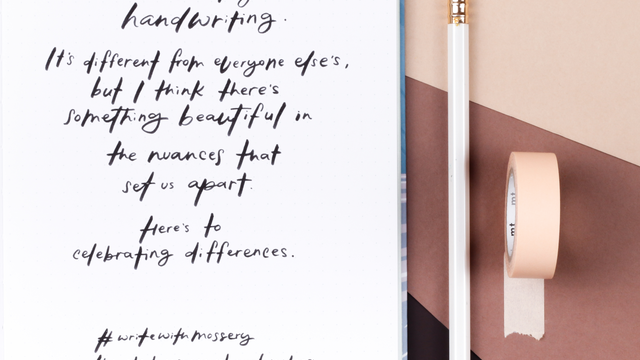 handwriting.
It's different from everyone else's,
but I think there's
something beautiful in
the nuances that
set us apart.
Here's to
celebrating differences.
#writewithmossery
mt